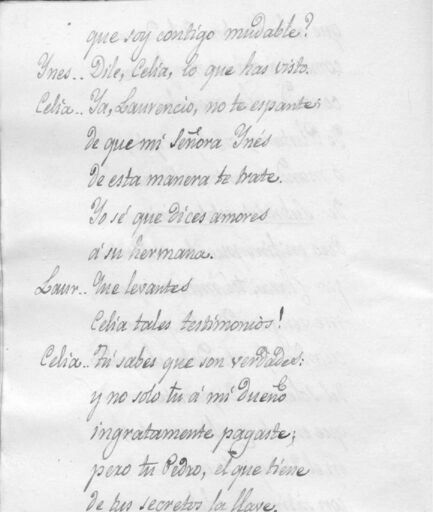 que soy contigo mudable?
Ynes.. Dile, Celia, lo que has visto.
Celia.. Ya, Laurencio, no te espantes
de que mi señora Ynés
de esta manera te trate.
Yo sé que dices amores
á su hermana.
Laur.. Que levantes
Celia tales testimonios!
Celia.. Tú sabes que son verdades:
y no solo tu á mi dueño
ingratamente pagaste;
pero tu Pedro, el que tiene
de tus secretos la llave,